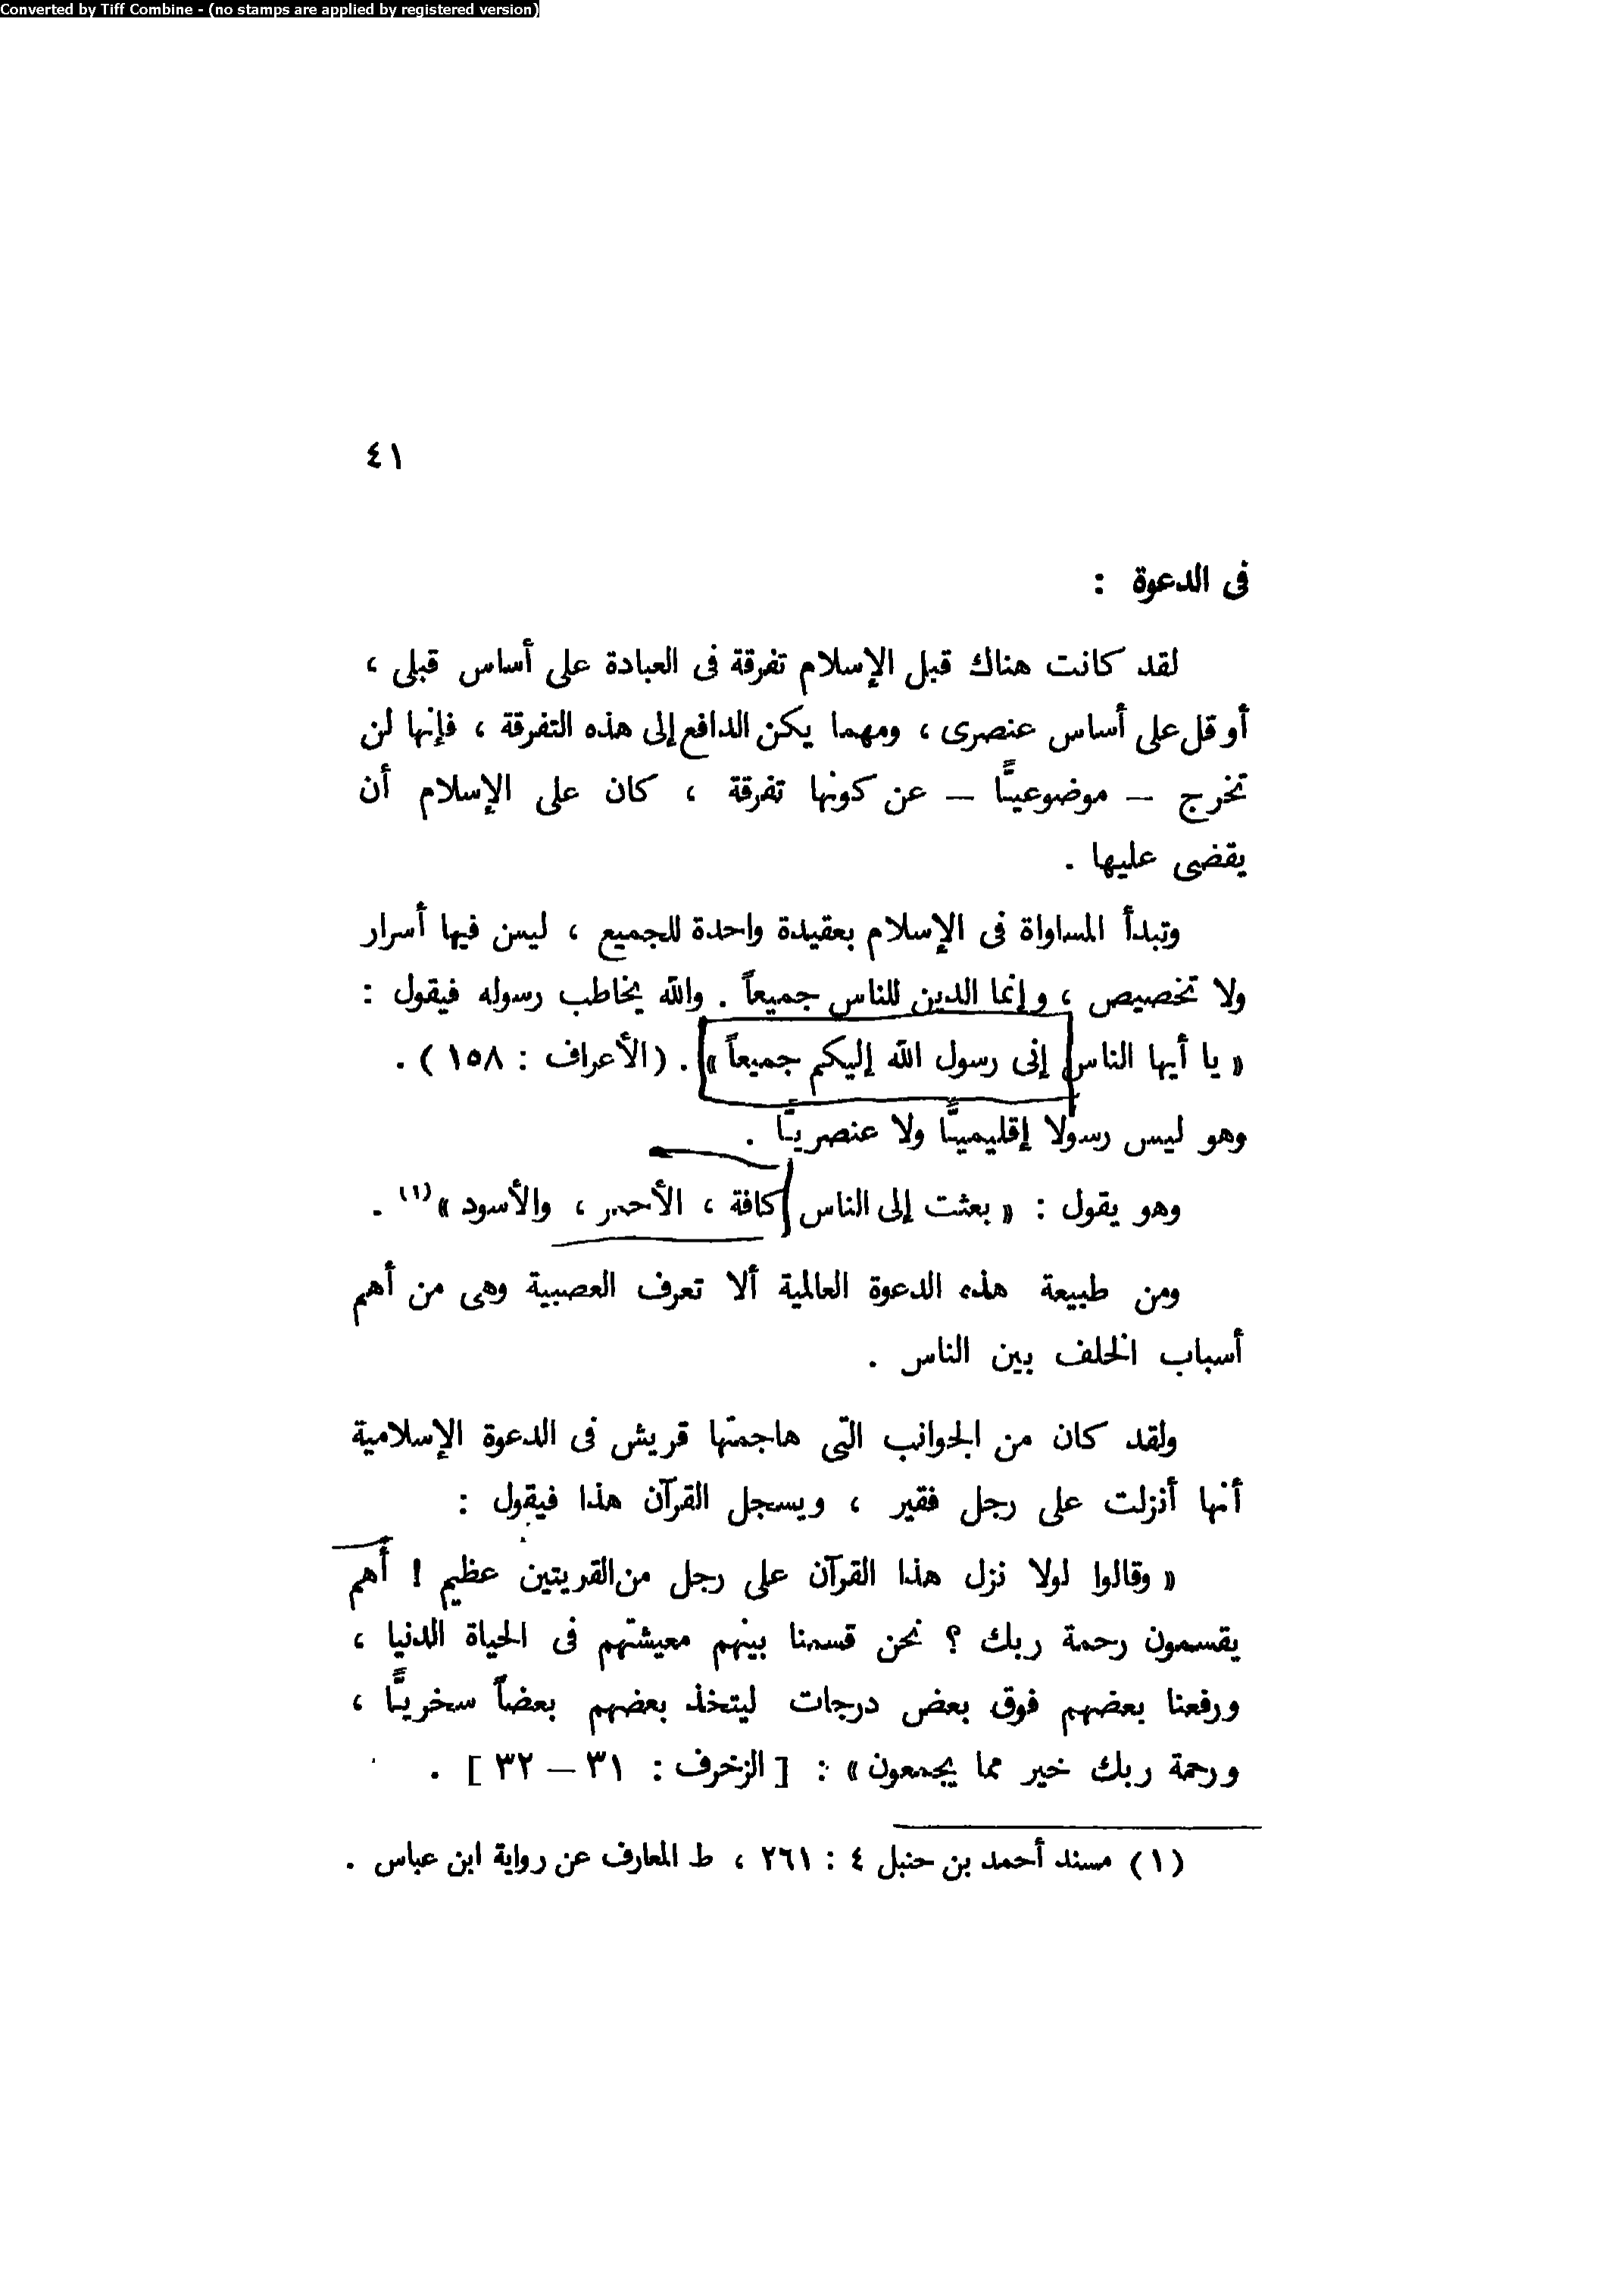 Converted by Tiff Combine - (no stamps are applied by registered version)
٤١
فى الدعوة :
لقد كانت هناك قبل الإسلام تفرقة فى العبادة على أساس قبلى ،
أو قل على أساس عنصرى ، ومهما يكن الدافع إلى هذه التفرقة ، فإنها لن
تخرج – موضوعيًّا – عن كونها تفرقة ، كان على الإسلام أن
يقضى عليها .
وتبدأ المساواة فى الإسلام بعقيدة واحدة للجميع ، ليس فيها أسرار
ولا تخصيص ، وإنما الدين للناس جميعاً . والله يخاطب رسوله فيقول :
« يا أيها الناس إنى رسول الله إليكم جميعاً » . ( الأعراف : ١٥٨ ) .
وهو ليس رسولا إقليميًّا ولا عنصريًّا .
وهو يقول : « بعثت إلى الناس كافة ، الأحمر ، والأسود »(١) .
ومن طبيعة هذه الدعوة العالمية ألا تعرف العصبية وهى من أهم
أسباب الخلف بين الناس .
ولقد كان من الجوانب التى هاجمتها قريش فى الدعوة الإسلامية
أنها أنزلت على رجل فقير ، ويسجل القرآن هذا فيقول :
« وقالوا لولا نزل هذا القرآن على رجل من القريتين عظيم ! أهم
يقسمون رحمة ربك ؟ نحن قسمنا بينهم معيشتهم فى الحياة الدنيا ،
ورفعنا بعضهم فوق بعض درجات ليتخذ بعضهم بعضاً سخريًّا ،
ورحمة ربك خير مما يجمعون » : [ الزخرف : ٣١ – ٣٢ ] .
(١) مسند أحمد بن حنبل ٤ : ٢٦١ ، ط المعارف عن رواية ابن عباس .